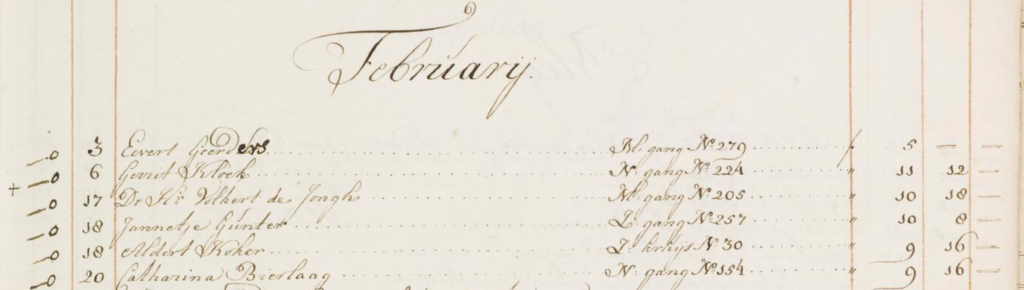 Februarij.
3 Evert Geerders M: gang No 279 f 5 — —
6 Gerrit Klock N: gang No 224 " 11 12 —
+ 17 De Hr. Volkert de Jongh M: gang No 205 " 10 18 —
18 Jannetje Gúnter Z: gang No 257 " 10 8 —
18 Aldert Koker Z: kruys No 30 " 9 16 —
20 Catharina Bierlaag N: gang No 154 " 9 16 —